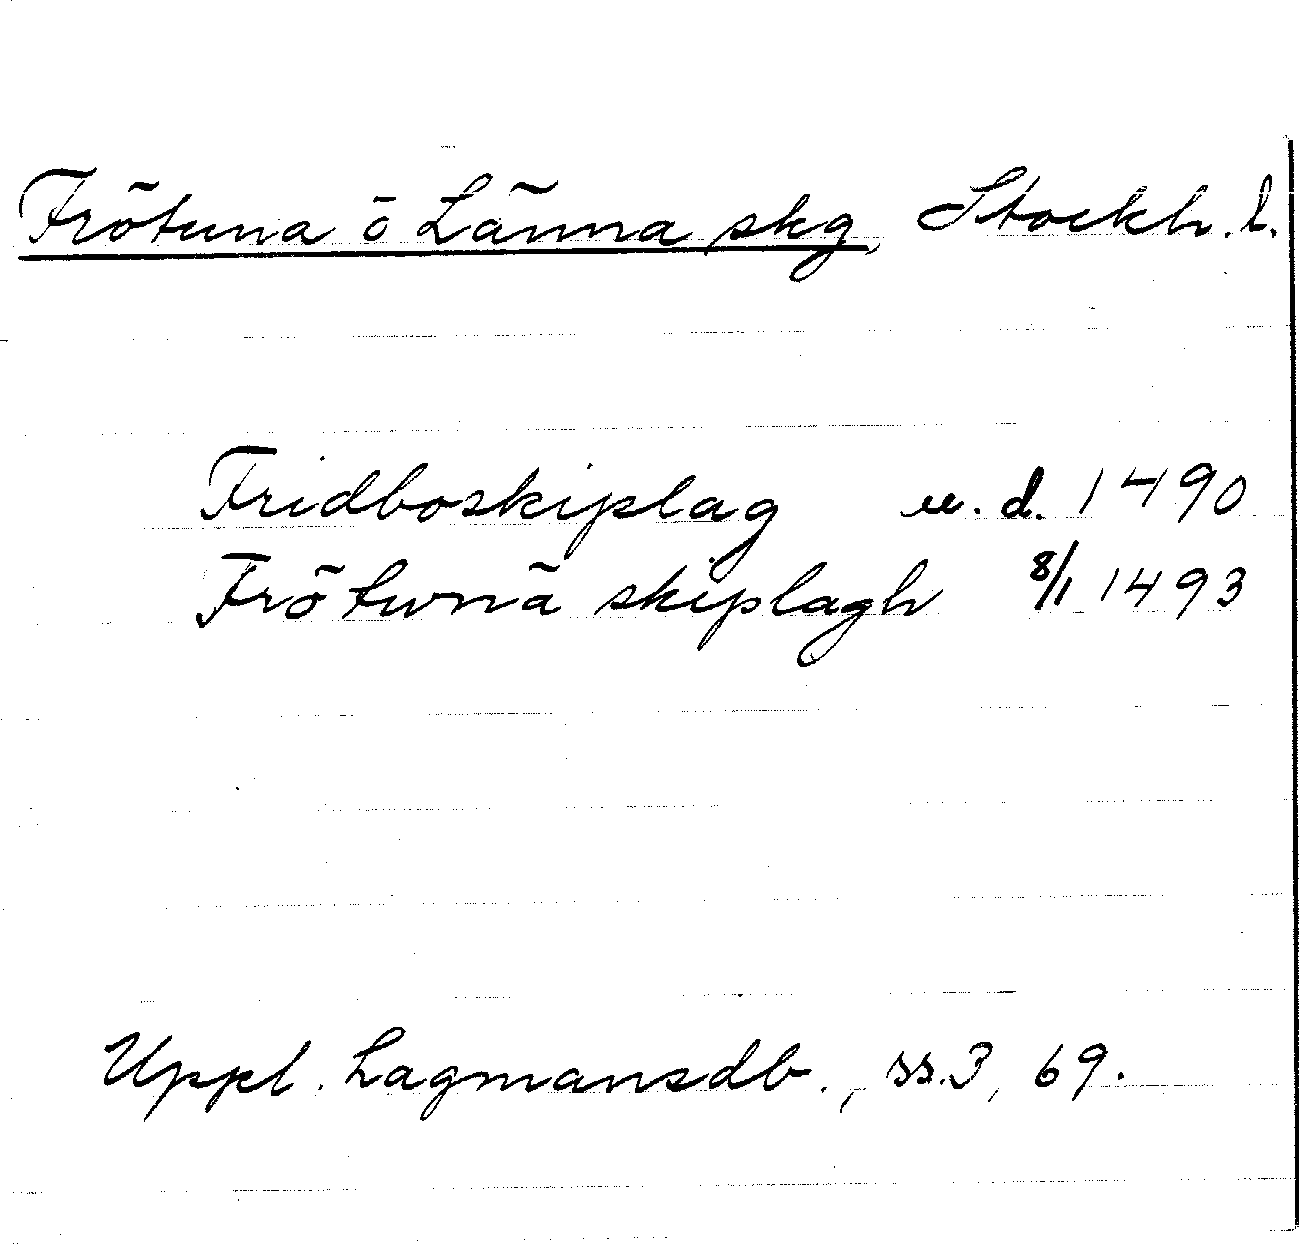 Frötuna ö Länna skg, Stockh. l.
Fridboskiplag u. d. 1490
Frötwnä skiplagh 8/1 1493
Uppl. Lagmansdb., ss. 3, 69.